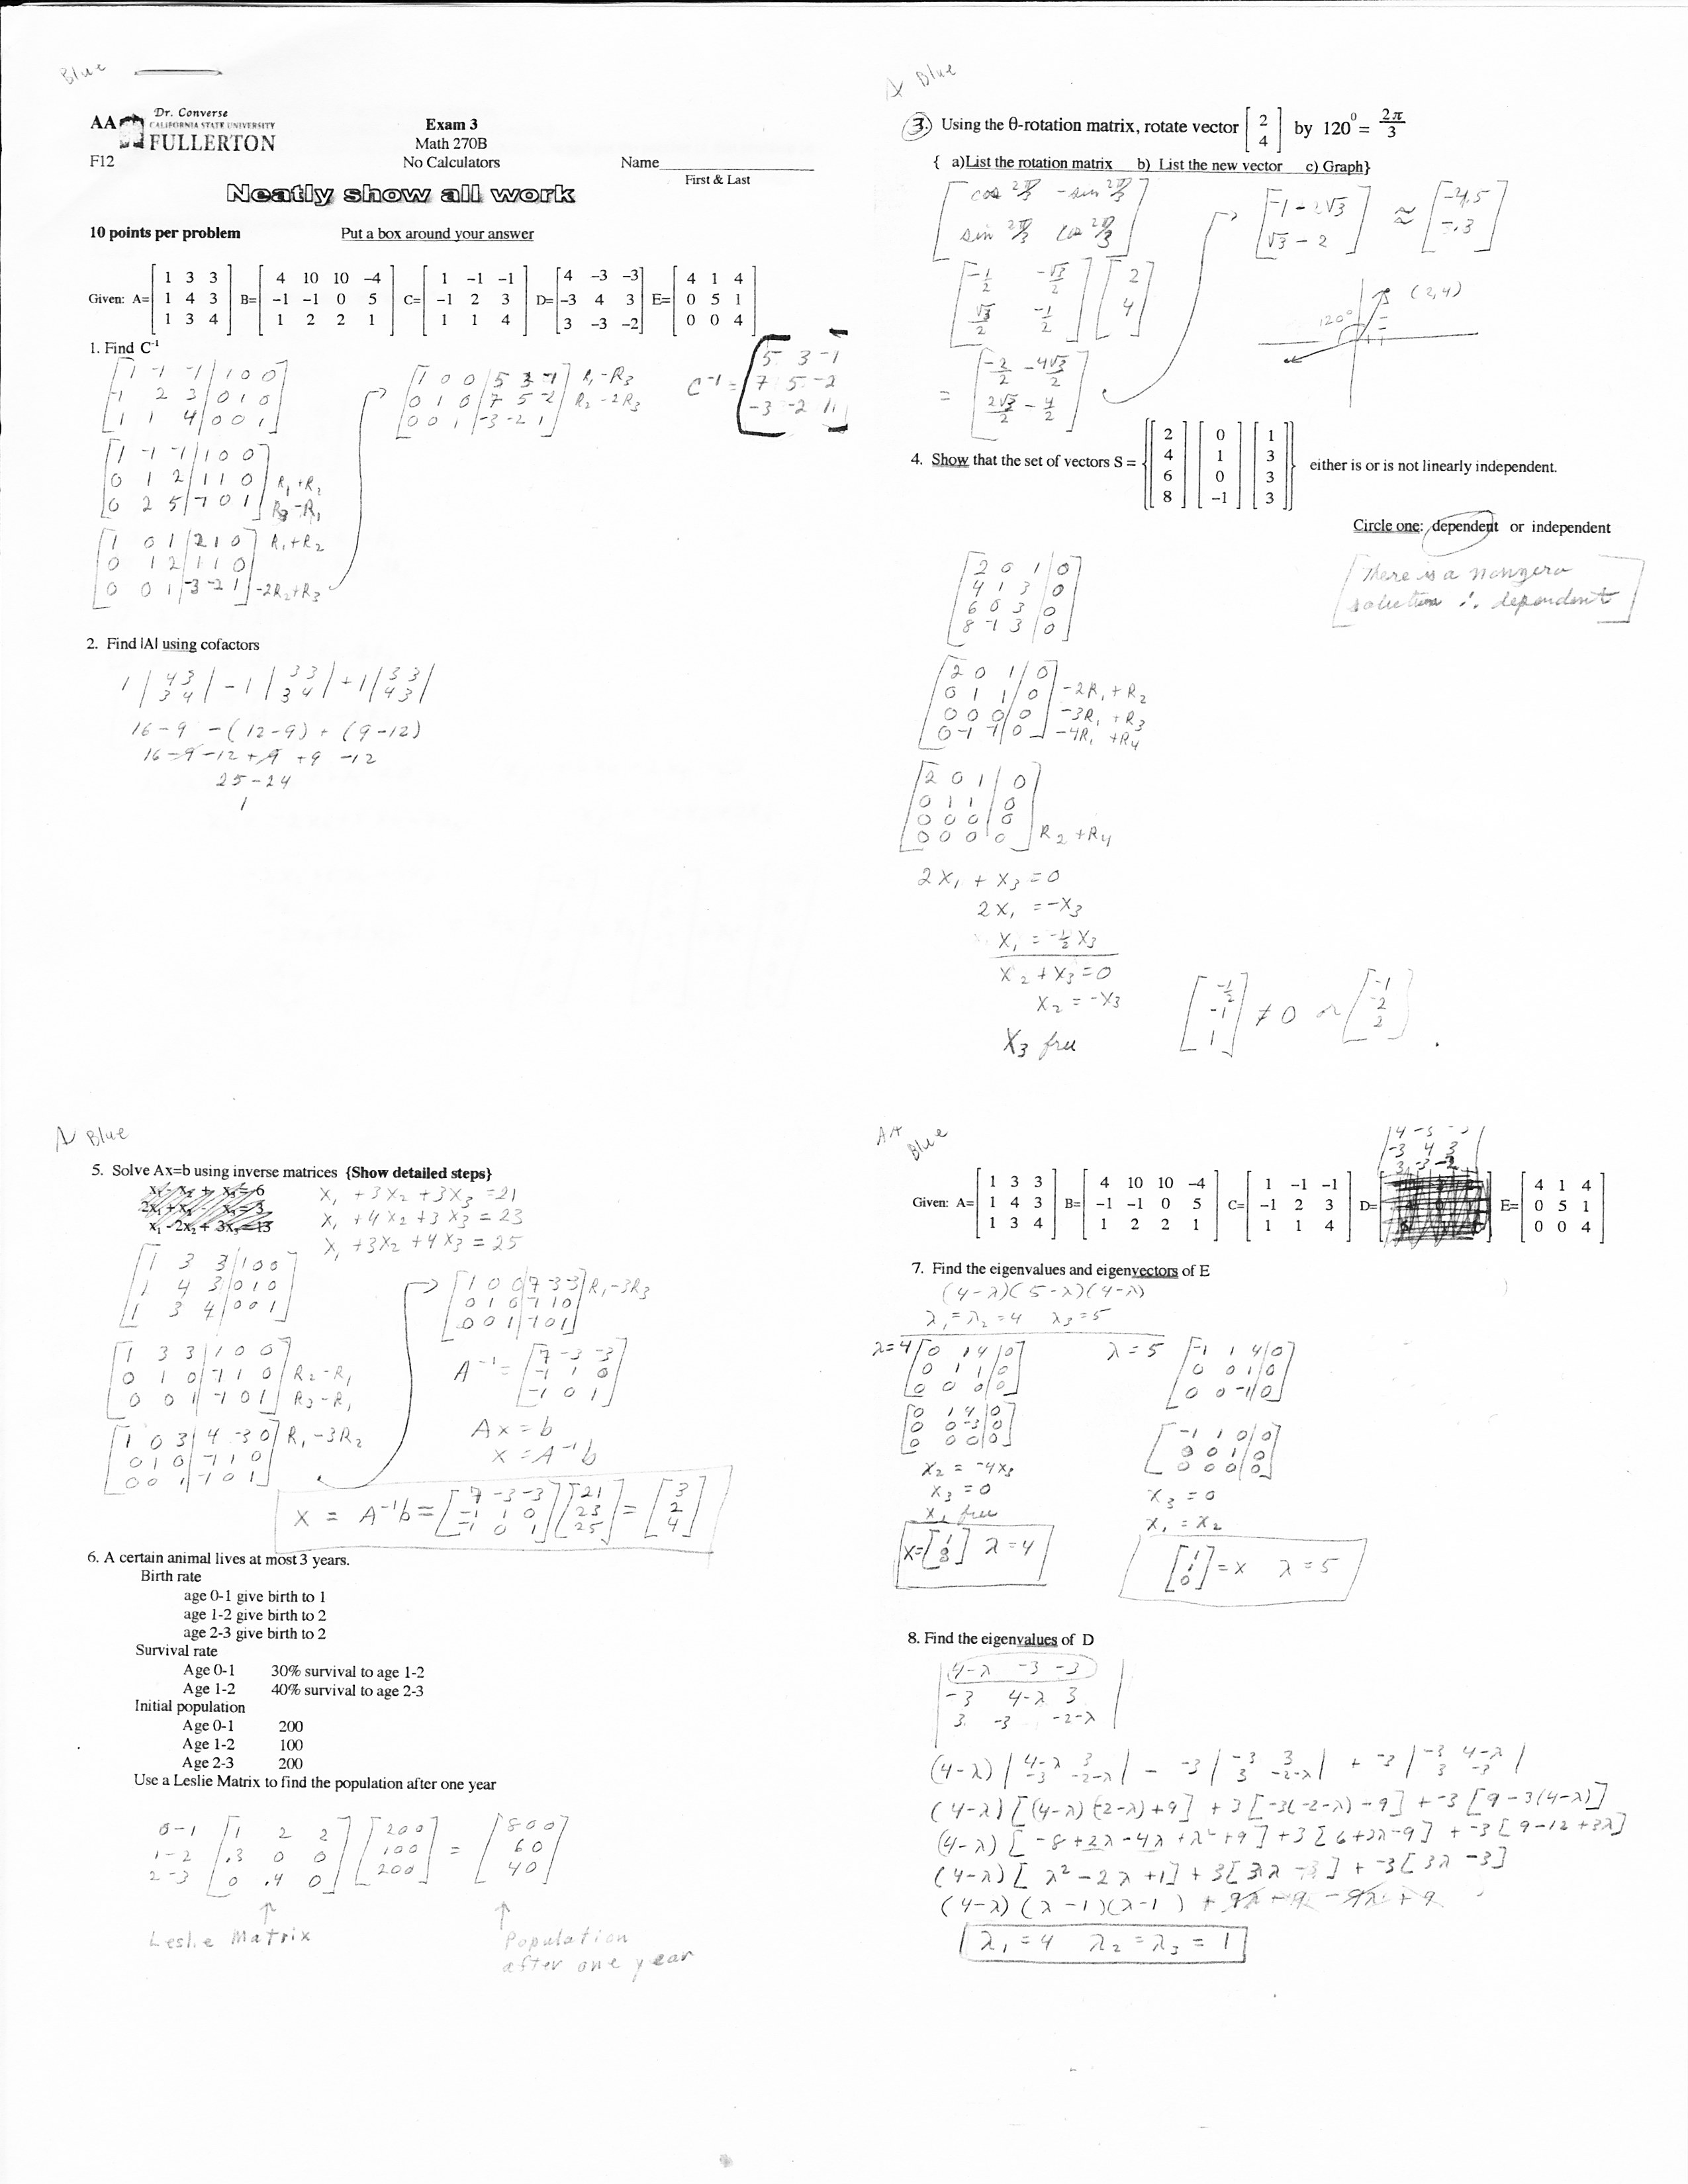 Blue
AA
Dr. Converse
CALIFORNIA STATE UNIVERSITY
FULLERTON
F12
Exam 3
Math 270B
No Calculators
Name
First & Last
Neatly show all work
10 points per problem Put a box around your answer
Given: A= [1 3 3; 1 4 3; 1 3 4] B= [4 10 10 −4; −1 −1 0 5; 1 2 2 1] C= [1 −1 −1; −1 2 3; 1 1 4] D= [4 −3 −3; −3 4 3; 3 −3 −2] E= [4 1 4; 0 5 1; 0 0 4]
1. Find C-1
[1 -1 -1 | 1 0 0
-1 2 3 | 0 1 0
1 1 4 | 0 0 1]
[1 -1 -1 | 1 0 0
0 1 2 | 1 1 0] R1+R2
0 2 5 | -1 0 1] R3-R1
[1 0 1 | 2 1 0] R1+R2
0 1 2 | 1 1 0
0 0 1 | -3 -2 1] -2R2+R3
[1 0 0 | 5 3 -1] R1-R3
0 1 0 | 7 5 -2] R2-2R3
0 0 1 | -3 -2 1]
C-1 = [5 3 -1
7 5 -2
-3 -2 1]
2. Find |A| using cofactors
1 |4 3; 3 4| - 1 |3 3; 3 4| + 1 |3 3; 4 3|
16-9 -(12-9) + (9-12)
16-9-12+9 +9 -12
25-24
1
Blue
3. Using the θ-rotation matrix, rotate vector [2; 4] by 120° = 2π/3
{ a)List the rotation matrix b) List the new vector c) Graph}
[cos 2π/3 -sin 2π/3
sin 2π/3 cos 2π/3]
[-1/2 -√3/2; √3/2 -1/2] [2; 4]
= [-2/2 -4√3/2; 2√3/2 - 4/2]
[-1-2√3; √3-2] ≈ [-4.5; -.3]
(2,4)
120°
4. Show that the set of vectors S = {[2; 4; 6; 8] [0; 1; 0; −1] [1; 3; 3; 3]} either is or is not linearly independent.
Circle one: dependent or independent
There is a nonzero
solution ∴ dependent
[2 0 1 | 0
4 1 3 | 0
6 0 3 | 0
8 -1 3 | 0]
[2 0 1 | 0
0 1 1 | 0] -2R1+R2
0 0 0 | 0] -3R1+R3
0 -1 -1 | 0] -4R1+R4
[2 0 1 | 0
0 1 1 | 0
0 0 0 | 0
0 0 0 | 0] R2+R4
2x1 + x3 = 0
2x1 = -x3
x1 = -1/2 x3
x2 + x3 = 0
x2 = -x3
x3 free
[-1/2; -1; 1] ≠ 0 or [-1; -2; 2]
Blue
5. Solve Ax=b using inverse matrices {Show detailed steps}
x1 +3x2 +3x3 =21
x1 +4x2 +3x3 = 23
x1 +3x2 +4x3 = 25
[1 3 3 | 1 0 0
1 4 3 | 0 1 0
1 3 4 | 0 0 1]
[1 3 3 | 1 0 0
0 1 0 | -1 1 0] R2-R1
0 0 1 | -1 0 1] R3-R1
[1 0 3 | 4 -3 0] R1-3R2
0 1 0 | -1 1 0
0 0 1 | -1 0 1]
[1 0 0 | 7 -3 -3] R1-3R3
0 1 0 | -1 1 0
0 0 1 | -1 0 1]
A-1 = [7 -3 -3; -1 1 0; -1 0 1]
Ax = b
x = A-1b
x = A-1b = [7 -3 -3; -1 1 0; -1 0 1] [21; 23; 25] = [3; 2; 4]
6. A certain animal lives at most 3 years.
Birth rate
age 0-1 give birth to 1
age 1-2 give birth to 2
age 2-3 give birth to 2
Survival rate
Age 0-1 30% survival to age 1-2
Age 1-2 40% survival to age 2-3
Initial population
Age 0-1 200
Age 1-2 100
Age 2-3 200
Use a Leslie Matrix to find the population after one year
0-1 [1 2 2] [200] = [800]
1-2 [.3 0 0] [100] [60]
2-3 [0 .4 0] [200] [40]
Leslie Matrix
Population
after one year
AA
Blue
[4 -3 -3
-3 4 3
3 -3 -2]
Given: A= [1 3 3; 1 4 3; 1 3 4] B= [4 10 10 −4; −1 −1 0 5; 1 2 2 1] C= [1 −1 −1; −1 2 3; 1 1 4] D= E= [4 1 4; 0 5 1; 0 0 4]
7. Find the eigenvalues and eigenvectors of E
(4-λ)(5-λ)(4-λ)
λ1=λ2=4 λ3=5
λ=4 [0 1 4 | 0
0 1 1 | 0
0 0 0 | 0]
[0 1 4 | 0
0 0 -3 | 0
0 0 0 | 0]
x2 = -4x3
x3 = 0
x1 free
x=[1; 0; 0] λ=4
λ=5 [-1 1 4 | 0
0 0 1 | 0
0 0 -1 | 0]
[-1 1 0 | 0
0 0 1 | 0
0 0 0 | 0]
x3 = 0
x1 = x2
[1; 1; 0] = x λ=5
8. Find the eigenvalues of D
|4-λ -3 -3
-3 4-λ 3
3 -3 -2-λ|
(4-λ) |4-λ 3; -3 -2-λ| - -3 |-3 3; 3 -2-λ| + -3 |-3 4-λ; 3 -3|
(4-λ)[(4-λ)(-2-λ)+9] +3[-3(-2-λ)-9] + -3[9-3(4-λ)]
(4-λ)[-8+2λ-4λ+λ²+9] +3[6+3λ-9] + -3[9-12+3λ]
(4-λ)[λ²-2λ+1] +3[3λ-3] + -3[3λ-3]
(4-λ)(λ-1)(λ-1) + 9λ - 9 - 9λ + 9
λ1=4 λ2=λ3=1